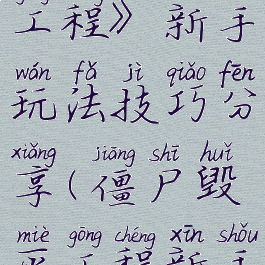 工程》 新手
wán fǎ jì qiǎo fēn
玩法技巧分
xiǎng jiāng shī huǐ
享(僵尸毁
miè gōng chéng xīn shǒu
灭工程新手